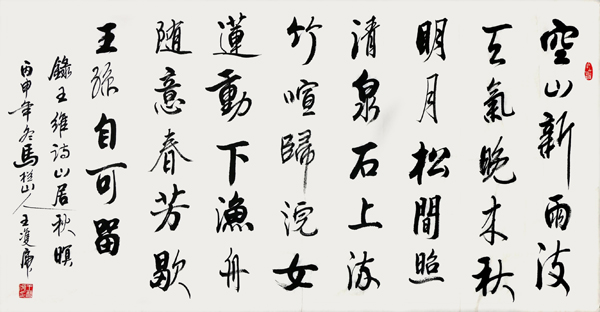 空山新雨後
天氣晚来秋
明月松間照
清泉石上流
竹喧歸浣女
蓮動下漁舟
随意春芳歇
王孫自可留
錄王維詩山居秋暝
丙申年冬馬山人王